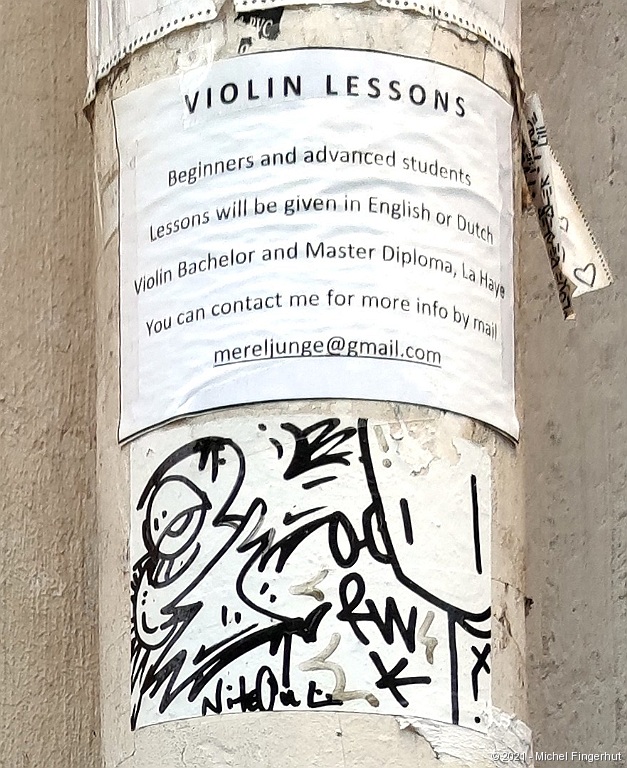 VIOLIN LESSONS
Beginners and advanced students
Lessons will be given in English or Dutch
Violin Bachelor and Master Diploma, La Haye
You can contact me for more info by mail
mereljunge@gmail.com
RW
K
X
© 2021 - Michel Fingerhut